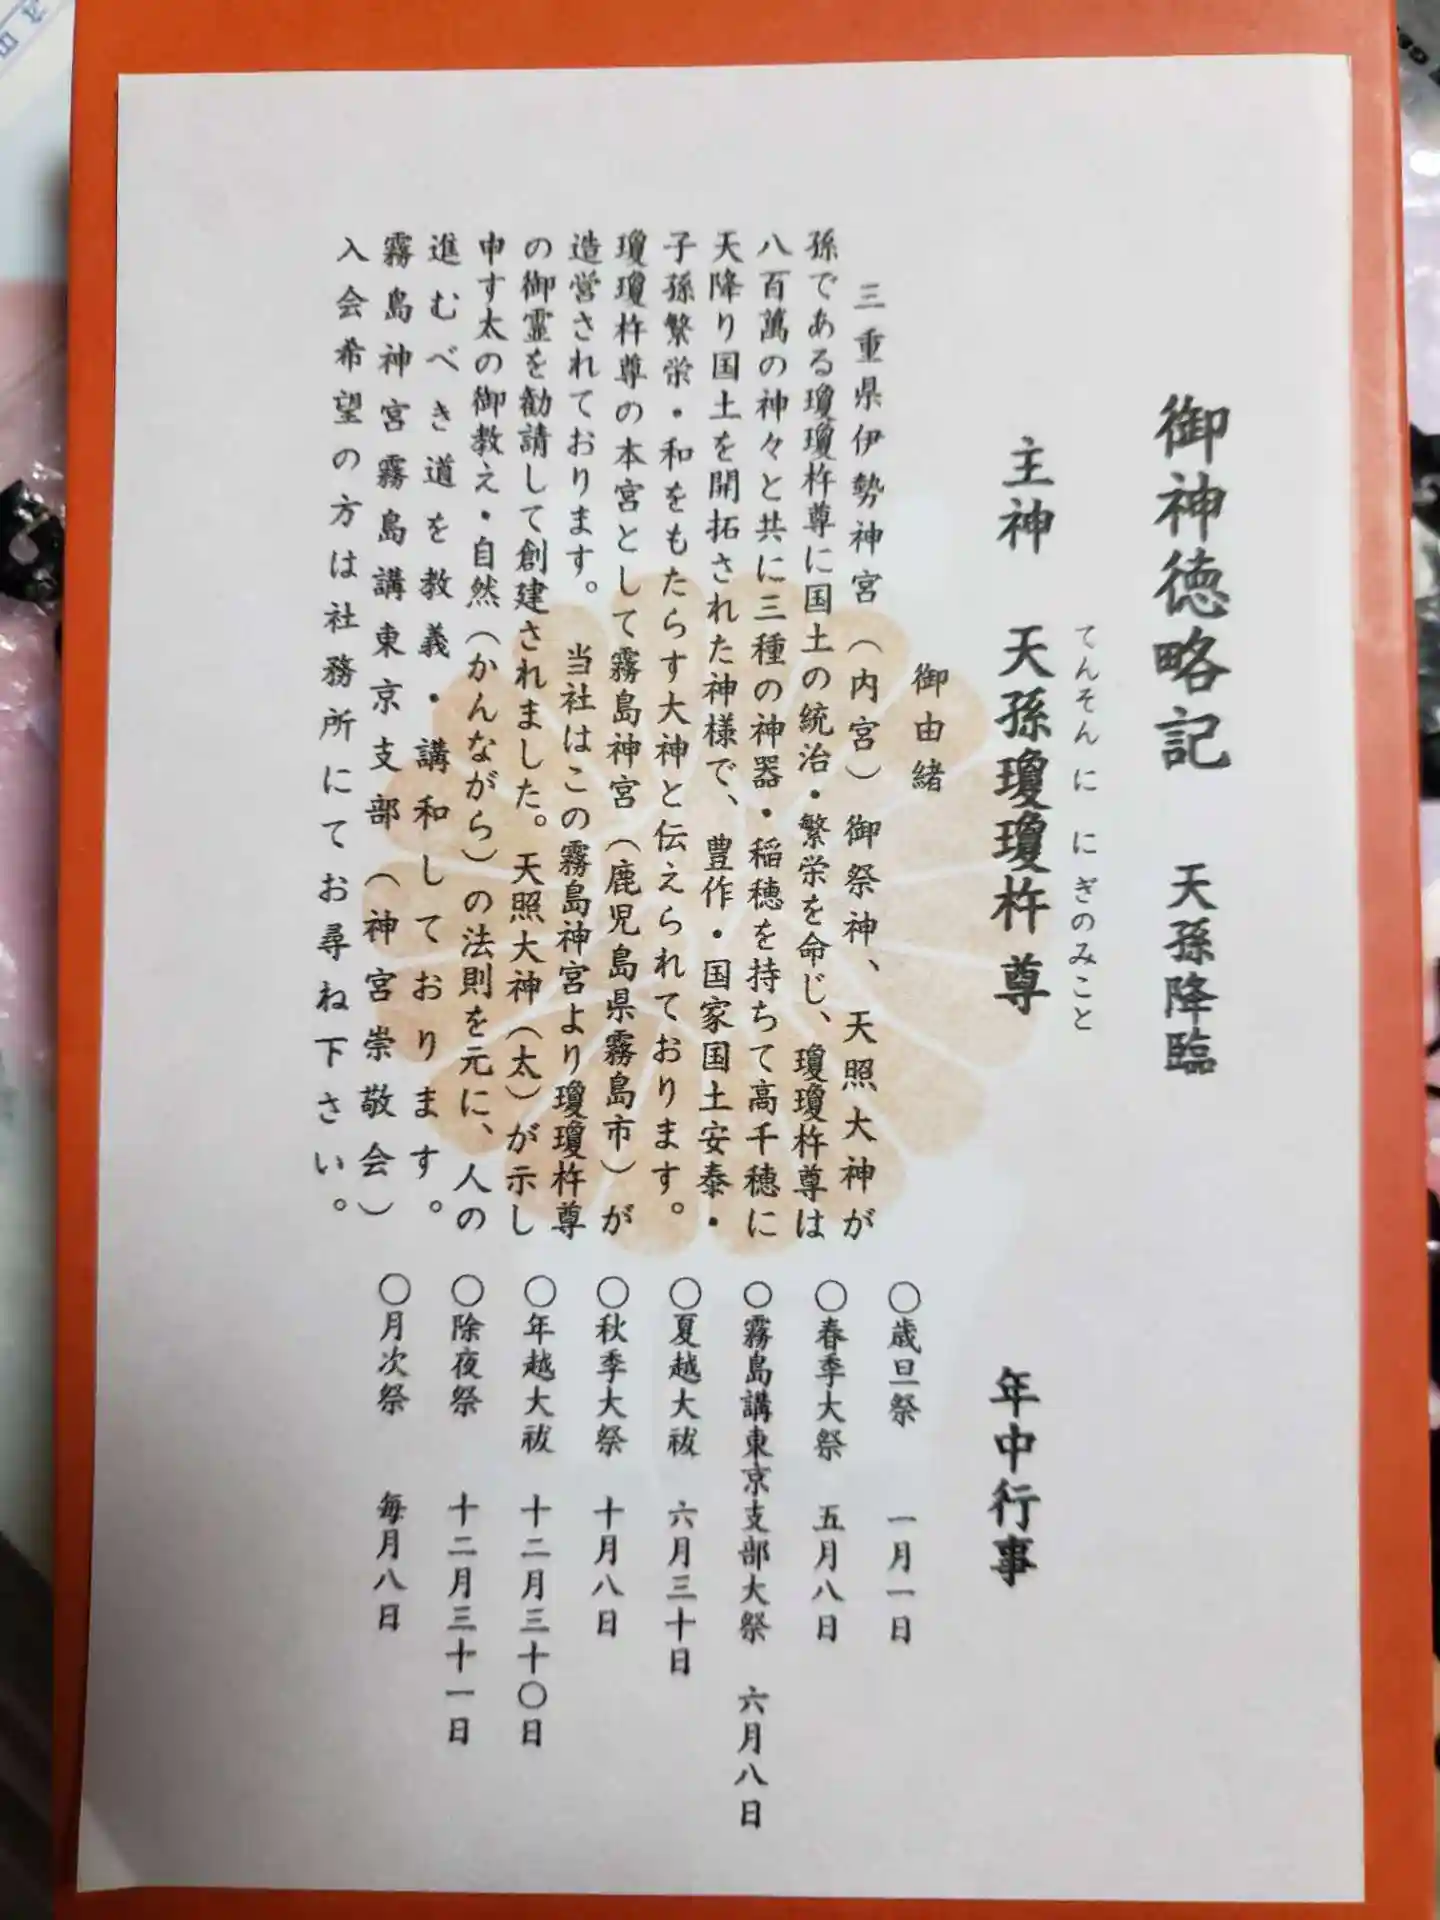 御神徳略記　天孫降臨
てんそんに にぎのみこと
主神　天孫瓊瓊杵尊
御由緒
三重県伊勢神宮（内宮）御祭神、天照大神が
孫である瓊瓊杵尊に国土の統治・繁栄を命じ、瓊瓊杵尊は
八百萬の神々と共に三種の神器・稲穂を持ちて高千穂に
天降り国土を開拓された神様で、豊作・国家国土安泰・
子孫繁栄・和をもたらす大神と伝えられております。
瓊瓊杵尊の本宮として霧島神宮（鹿児島県霧島市）が
造営されております。　当社はこの霧島神宮より瓊瓊杵尊
の御霊を勧請して創建されました。天照大神（太）が示し
申す太の御教え・自然（かんながら）の法則を元に、人の
進むべき道を教義・講和しております。
霧島神宮霧島講東京支部（神宮崇敬会）
入会希望の方は社務所にてお尋ね下さい。
年中行事
〇歳旦祭　一月一日
〇春季大祭　五月八日
〇霧島講東京支部大祭　六月八日
〇夏越大祓　六月三十日
〇秋季大祭　十月八日
〇年越大祓　十二月三十〇日
〇除夜祭　十二月三十一日
〇月次祭　毎月八日